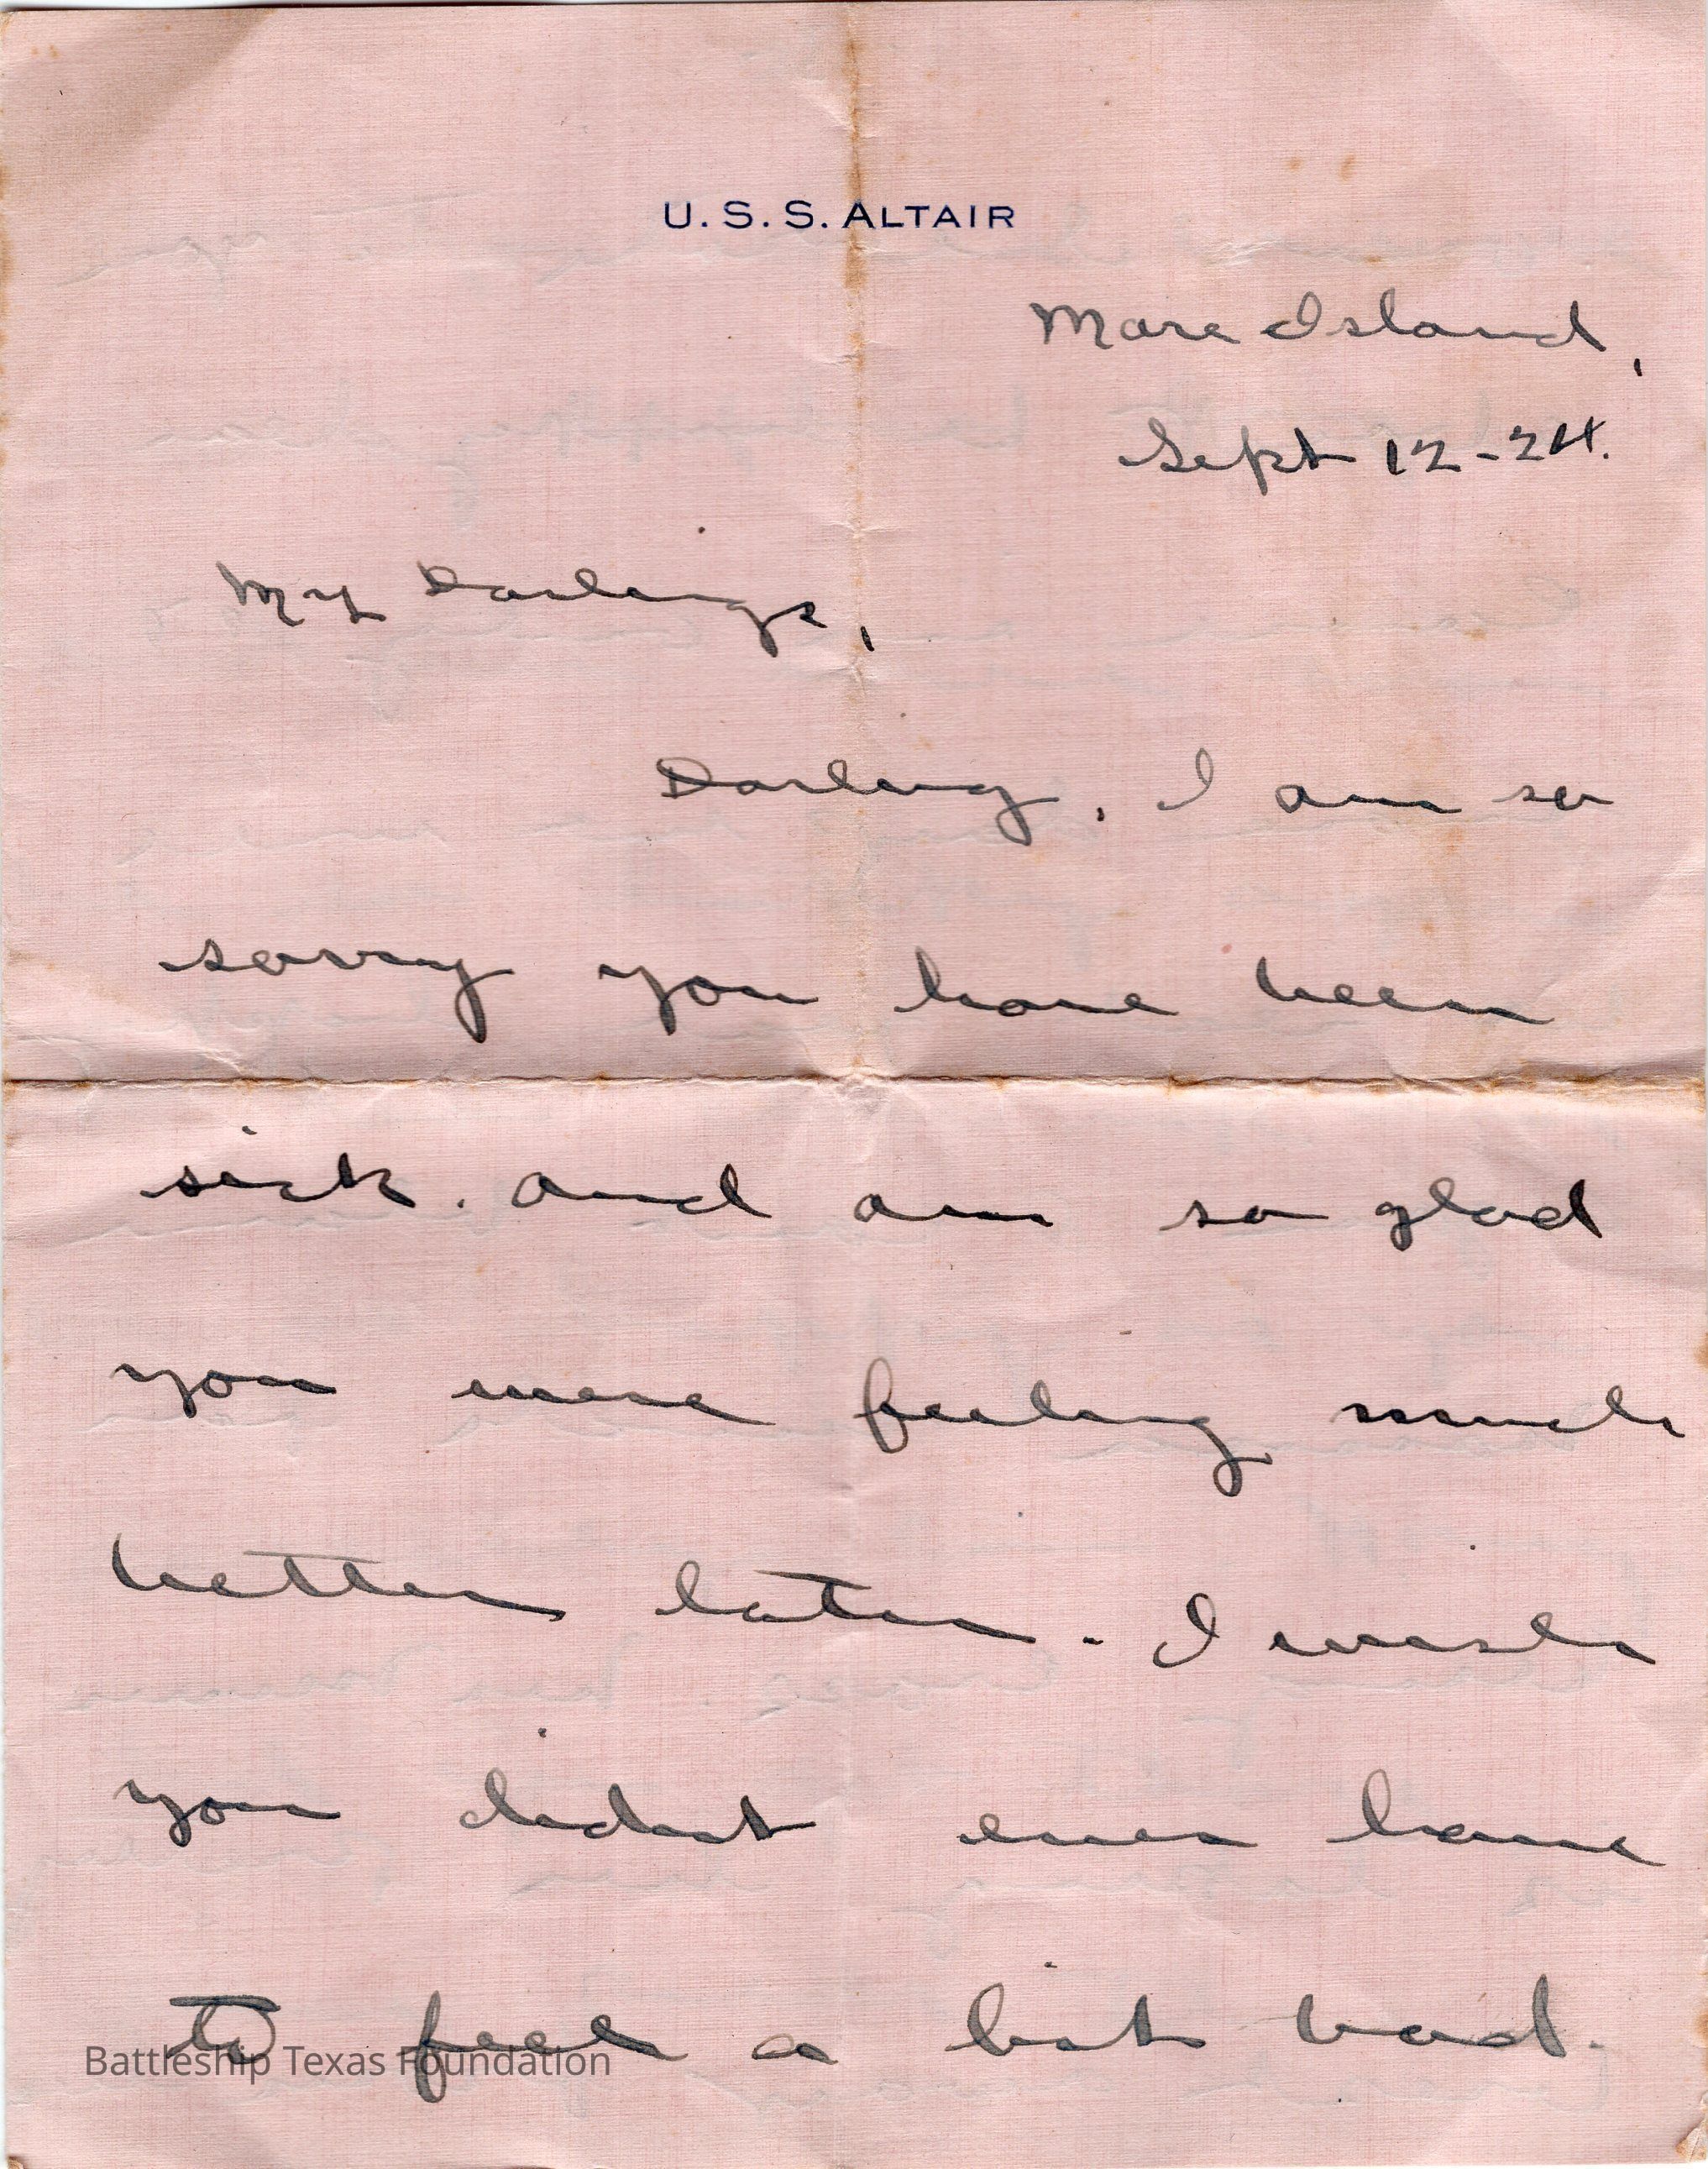 U.S.S. ALTAIR
Mare Island,
Sept 12-24.
My Darlings,
Darling, I am so
sorry you have been
sick. and am so glad
you were feeling much
better later. I wish
you didnt ever have
to feel a bit bad.
Battleship Texas Foundation